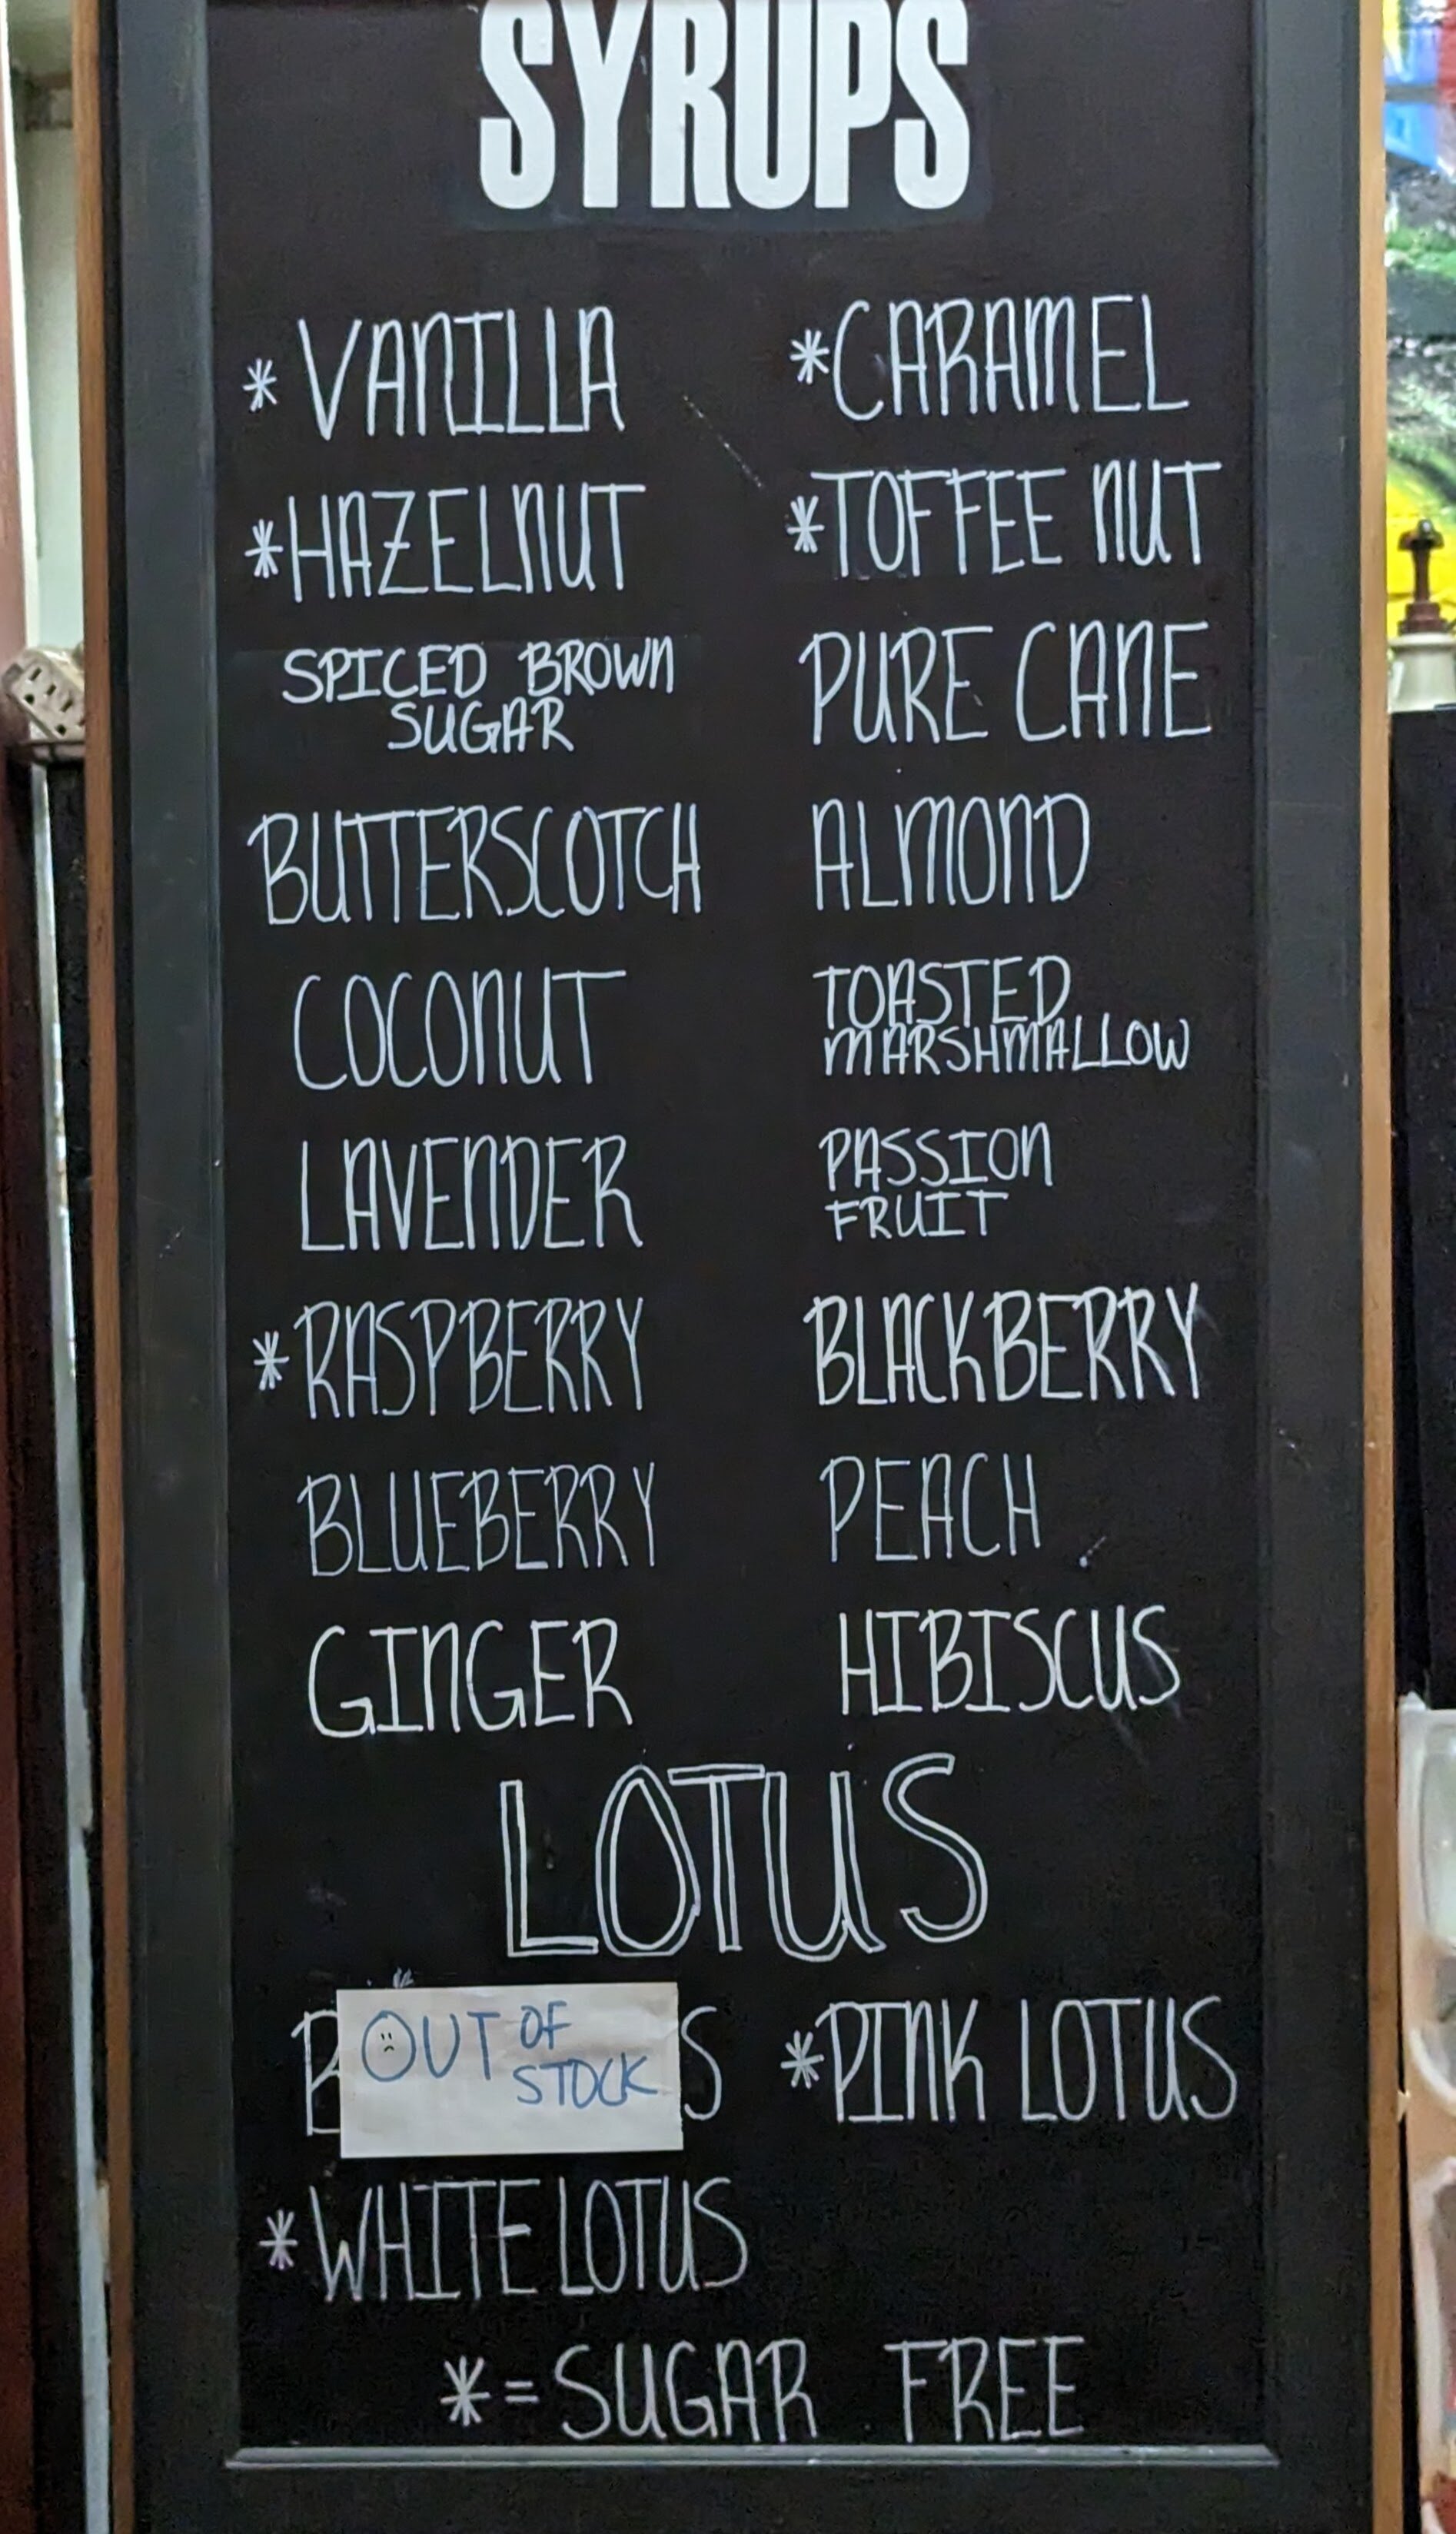 SYRUPS
*VANILLA *CARAMEL
*HAZELNUT *TOFFEE NUT
SPICED BROWN
SUGAR
PURE CANE
BUTTERSCOTCH ALMOND
COCONUT
TOASTED
MARSHMALLOW
LAVENDER
PASSION
FRUIT
*RASPBERRY BLACKBERRY
BLUEBERRY PEACH
GINGER HIBISCUS
LOTUS
OUT OF
STOCK
*PINK LOTUS
*WHITE LOTUS
*=SUGAR FREE